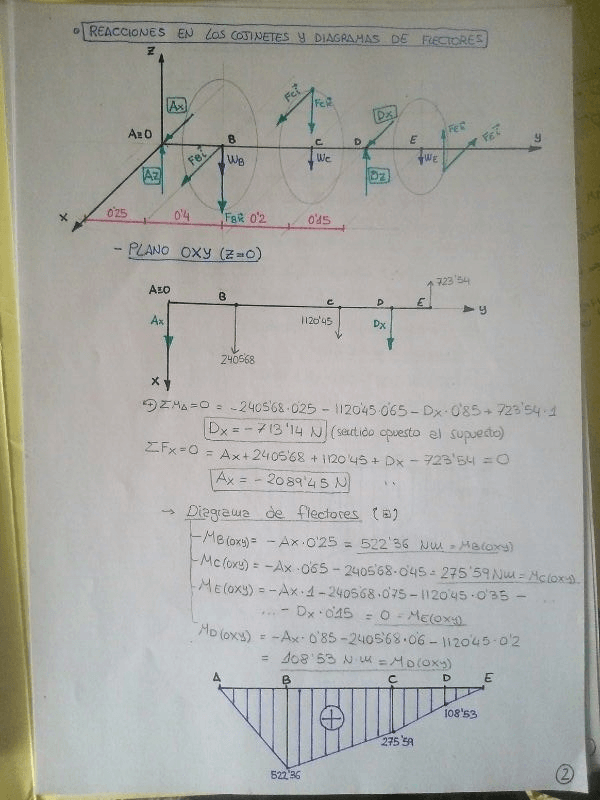 REACCIONES EN LOS COJINETES Y DIAGRAMAS DE FLECTORES
Z
Ax
Fct
FcR
Dx
A≡O
B
C
D
E
y
Az
FBt
WB
Wc
Dz
WE
FER
FEt
X
0'25
0'4
FBR
0'2
0'15
- PLANO OXY (Z=0)
723'54
A≡O
B
C
D
E
y
Ax
1120'45
Dx
X
2405'68
ΣMA=0 = -2405'68·0'25 - 1120'45·0'65 - Dx·0'85 + 723'54·1
Dx = -713'14 N (sentido opuesto al supuesto)
ΣFx=0 = Ax + 2405'68 + 1120'45 + Dx - 723'54 = 0
Ax = -2089'45 N "
→ Diagrama de flectores (⊞)
- MB(oxy) = -Ax·0'25 = 522'36 Nm = MB(oxy)
- MC(oxy) = -Ax·0'65 - 2405'68·0'45 = 275'59 Nm = MC(oxy)
- ME(oxy) = -Ax·1 - 2405'68·0'75 - 1120'45·0'35 - ...
... - Dx·0'15 = 0 = ME(oxy)
MD(oxy) = -Ax·0'85 - 2405'68·0'6 - 1120'45·0'2
= 108'53 N·m = MD(oxy)
A
B
C
D
E
+
108'53
275'59
522'36
2